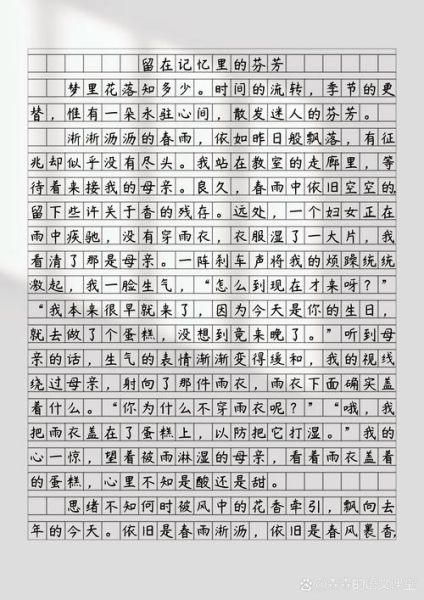 留在记忆里的芬芳
梦里花落知多少。时间的流转，季节的更
替，惟有一朵永驻心间，散发迷人的芬芳。
淅淅沥沥的春雨，依如昨日般飘落，有征
兆却似乎没有尽头。我站在教室的走廊里，等
待着来接我的母亲。良久，春雨中依旧空空的，
留下些许关于香的残存。远处，一个妇女正在
雨中疾驰，没有穿雨衣，衣服湿了一大片，我
看清了那是母亲。一阵刹车声将我的烦躁统统
激起，我一脸生气，“怎么到现在才来呀？”
“我本来很早就来了，因为今天是你的生日，
就去做了个蛋糕，没想到竟来晚了。”听到母
亲的话，生气的表情渐渐变得缓和，我的视线
绕过母亲，射向了那件雨衣，雨衣下面确实盖
着什么。“你为什么不穿雨衣呢？”“哦，我
把雨衣盖在了蛋糕上，以防把它打湿。”我的
心一惊，望着被雨淋湿的母亲，看着雨衣盖着
的蛋糕，心里不知是酸还是甜。
思绪不知何时被风中的花香牵引，飘向去
年的今天。依旧是春雨淅沥，依旧是春风裹香，